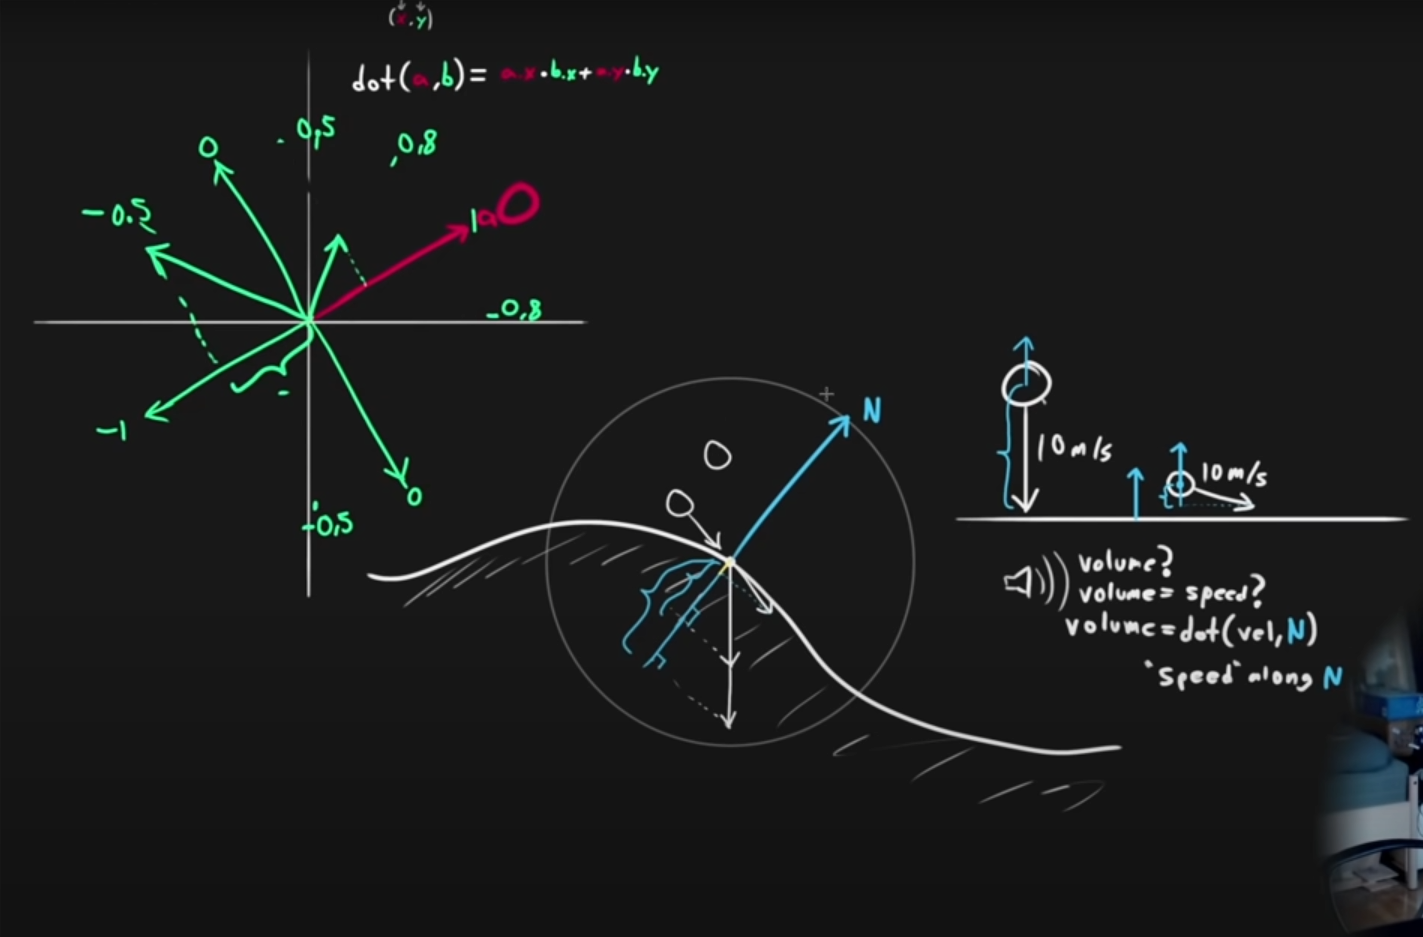 (x,y)
dot(a,b)= a.x·b.x+a.y·b.y
0
-0,5
,0,8
-0.5
1a
-0,8
-1
0
-0,5
N
10m/s
10m/s
volume?
volume= speed?
volume=dot(vel,N)
"Speed" along N